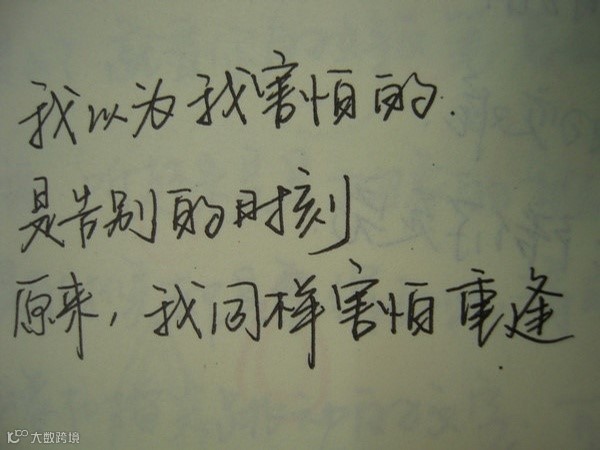 我以为我害怕的.
是告别的时刻
原来，我同样害怕重逢
大数跨境